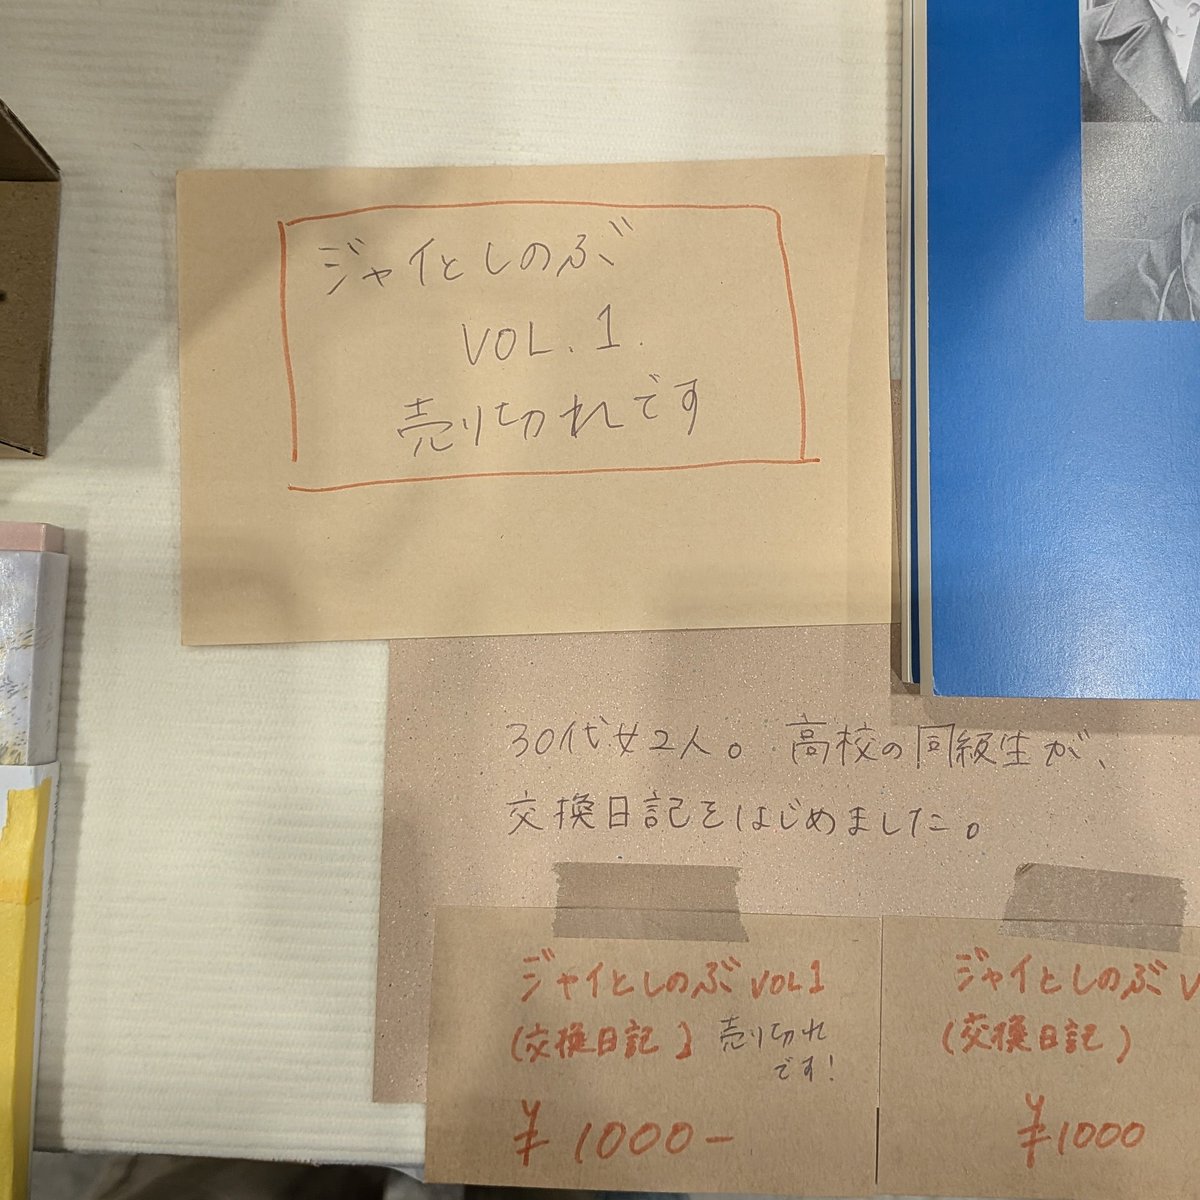 ジャイとしのぶ
VOL.1.
売り切れです
30代女2人。高校の同級生が、
交換日記をはじめました。
ジャイとしのぶ VOL1
(交換日記)
売り切れ
です!
¥1000-
ジャイとしのぶ V
(交換日記)
¥1000